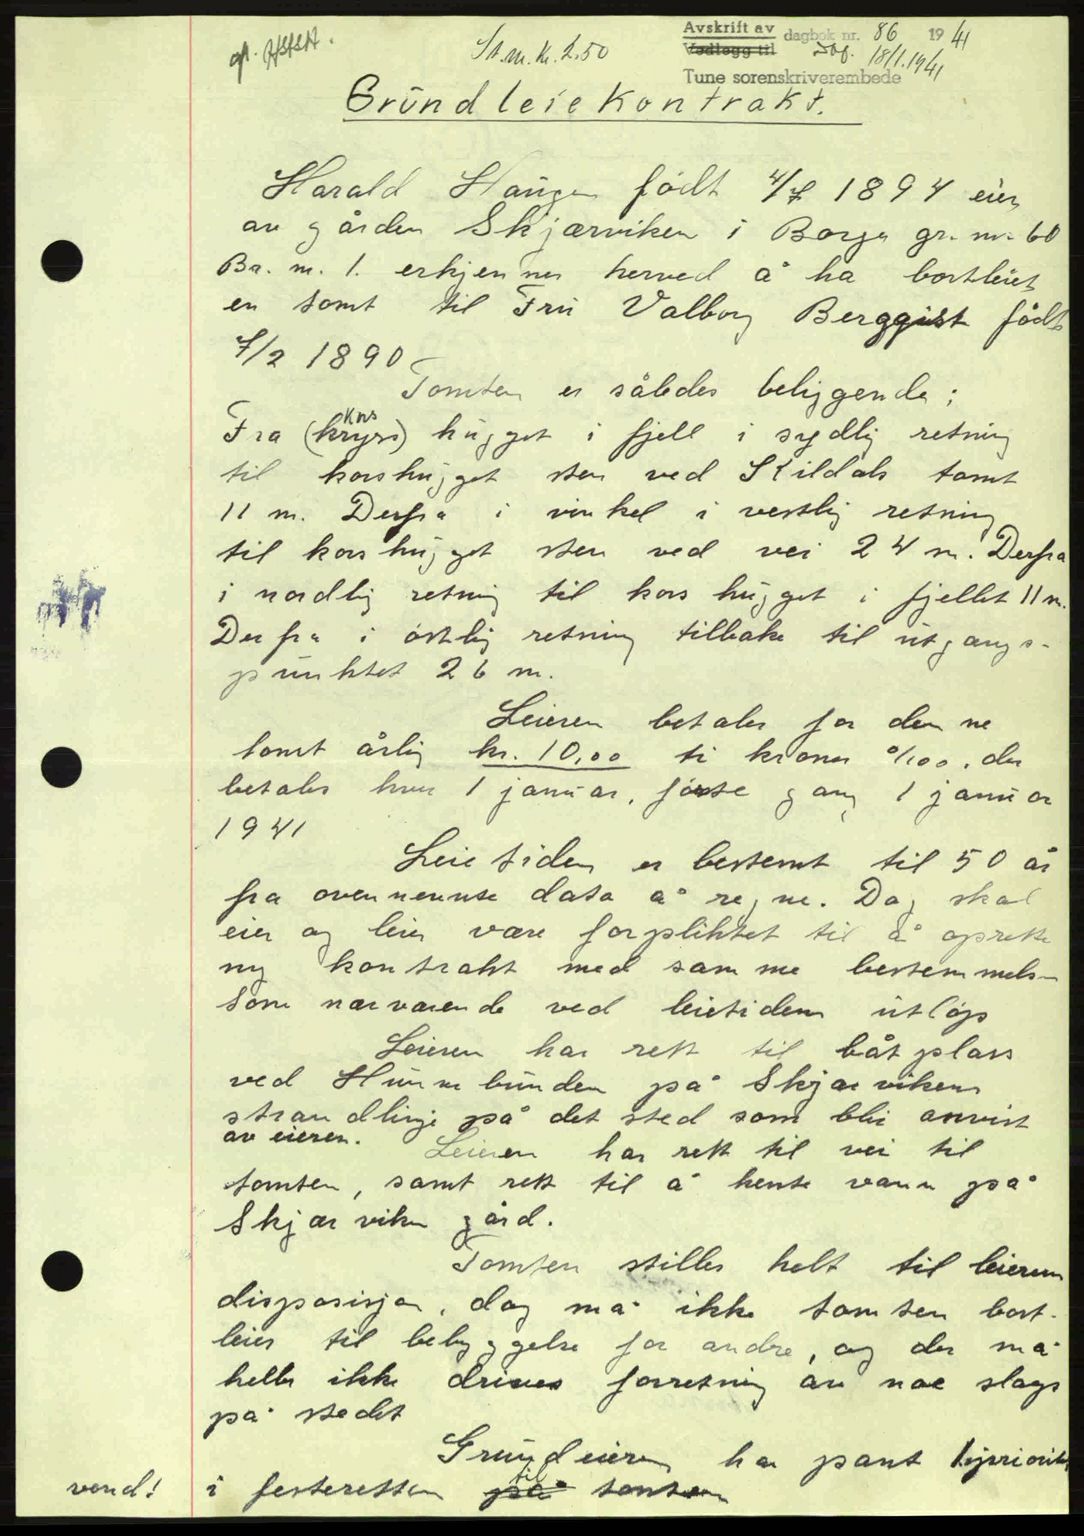 St.m. kr. 2.50
Avskrift av dagbok nr. 86 1941
Vedlegg til Dbf. 18/1.1941
Tune sorenskriverembede
Grundleiekontrakt.
Harald Haugen født 4/7 1894 eier
av gården Skjærviken i Borge gr. nr. 60
Br. nr. 1. erkjenner herved å ha bortleiet
en tomt til Fru Valborg Berggist født
7/2 1890
Tomten er således beliggende;
Fra (kryss) hugget i fjell i sydlig retning
til korshugget sten ved Kildals tomt
11 m. Derfra i vinkel i vestlig retning
til korshugget sten ved vei 24 m. Derfra
i nordlig retning til kors hugget i fjellet 11 m.
Derfra i østlig retning tilbake til utgangs-
punktet 26 m.
Leieren betaler for denne
tomt årlig kr. 10,00 ti kroner 0/00, der
betales hver 1 januar, første gang 1 januar
1941
Leietiden er bestemt til 50 år
fra ovennevnte dato å regne. Dog skal
eier og leier være forpliktet til å oprette
ny kontrakt med samme bestemmelser
som nærværende ved leietidens utløp
Leieren har rett til båtplass
ved Hunnebunden på Skjærvikens
strandlinje på det sted som blir anvist
av eieren. Leieren har rett til vei til
tomten, samt rett til å hente vann på
Skjærviken gård.
Tomten stilles helt til leierens
disposisjon, dog må ikke tomten bort-
leies til bebyggelse for andre, og der må
heller ikke drives forretning av noe slags
på stedet
Grundeieren har pant 1 prioritet
vend! i festeretten på til tomten